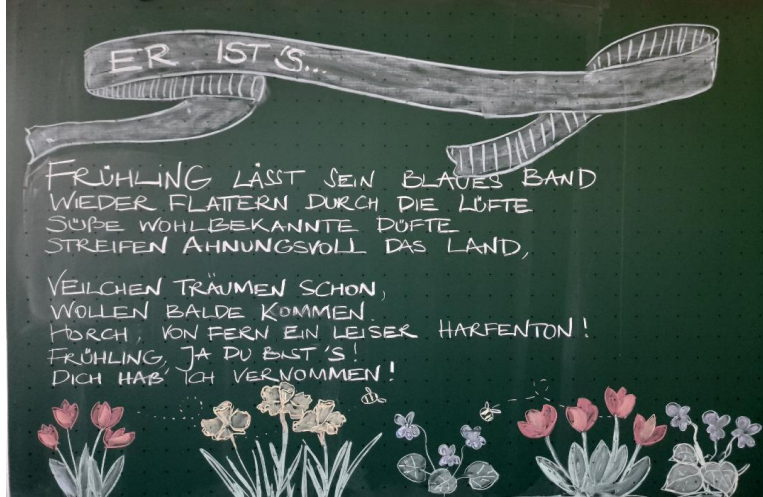 ER IST'S...
FRÜHLING LÄSST SEIN BLAUES BAND
WIEDER FLATTERN DURCH DIE LÜFTE
SÜßE WOHLBEKANNTE DÜFTE
STREIFEN AHNUNGSVOLL DAS LAND,
VEILCHEN TRÄUMEN SCHON,
WOLLEN BALDE KOMMEN.
HORCH, VON FERN EIN LEISER HARFENTON!
FRÜHLING, JA DU BIST'S!
DICH HAB' ICH VERNOMMEN!